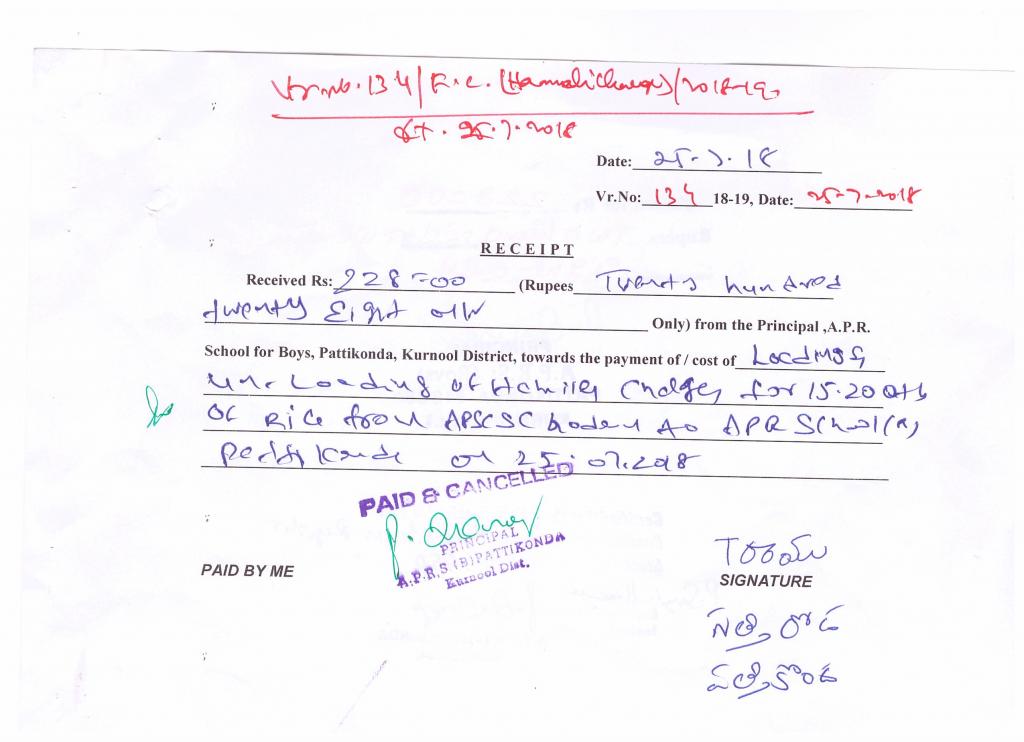 Vr.no. 134/R.C. (Hamali Charges)/2018-19
dt. 25.7.2018
Date: 25-7-18
Vr.No: 134 18-19, Date: 25-7-2018
RECEIPT
Received Rs: 228=00 (Rupees Twenty hundred
twenty Eight only Only) from the Principal ,A.P.R.
School for Boys, Pattikonda, Kurnool District, towards the payment of / cost of Loading &
un-Loading of for 15.20 Qtls
of Rice from APSCSC to APR School(B)
on 25.07.2018
PAID & CANCELLED
PRINCIPAL
A.P.R.S (B) PATTIKONDA
Kurnool Dist.
PAID BY ME
SIGNATURE
రోడ్
పత్తికొండ